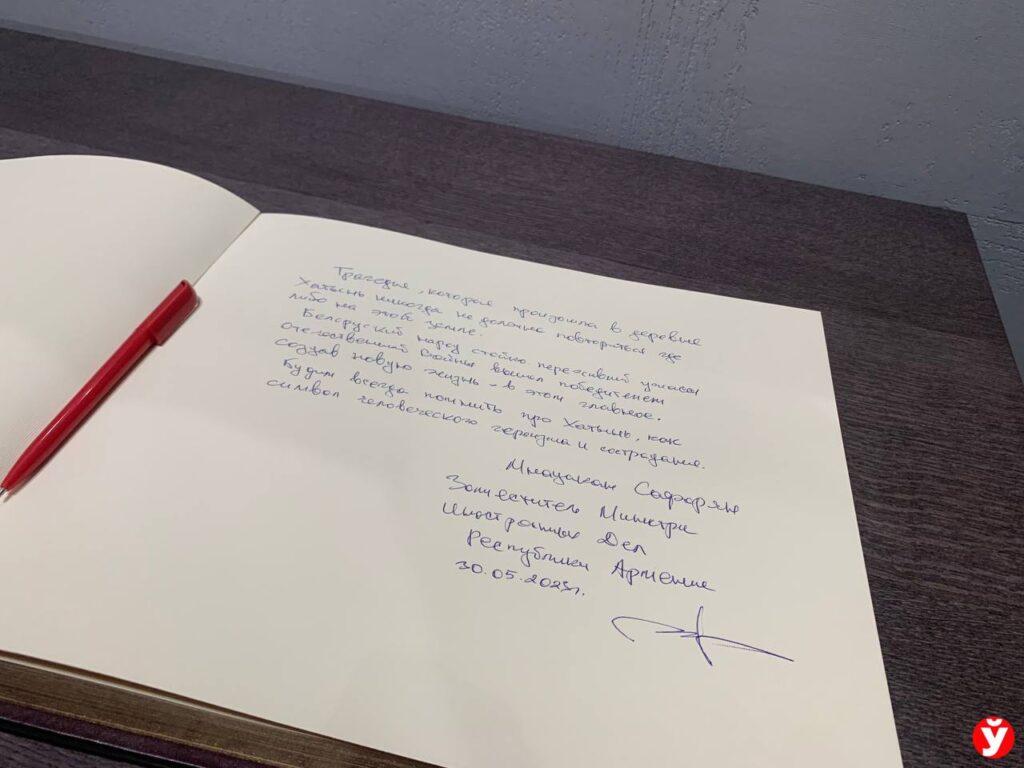 Трагедия, которая произошла в деревне
Хатынь никогда не должна повториться где
либо на этой земле.
Белоруский народ стойко переживший ужасы
отечественной войны вышел победителем
создав новую жизнь - в этом главное.
Будим всегда помнить про Хатынь, как
символ человеческого героизма и сострадания.
Мнацакан Сафарян
Заместитель Министра
Иностранных Дел
Республики Армение
30.05.2025г.
Ў